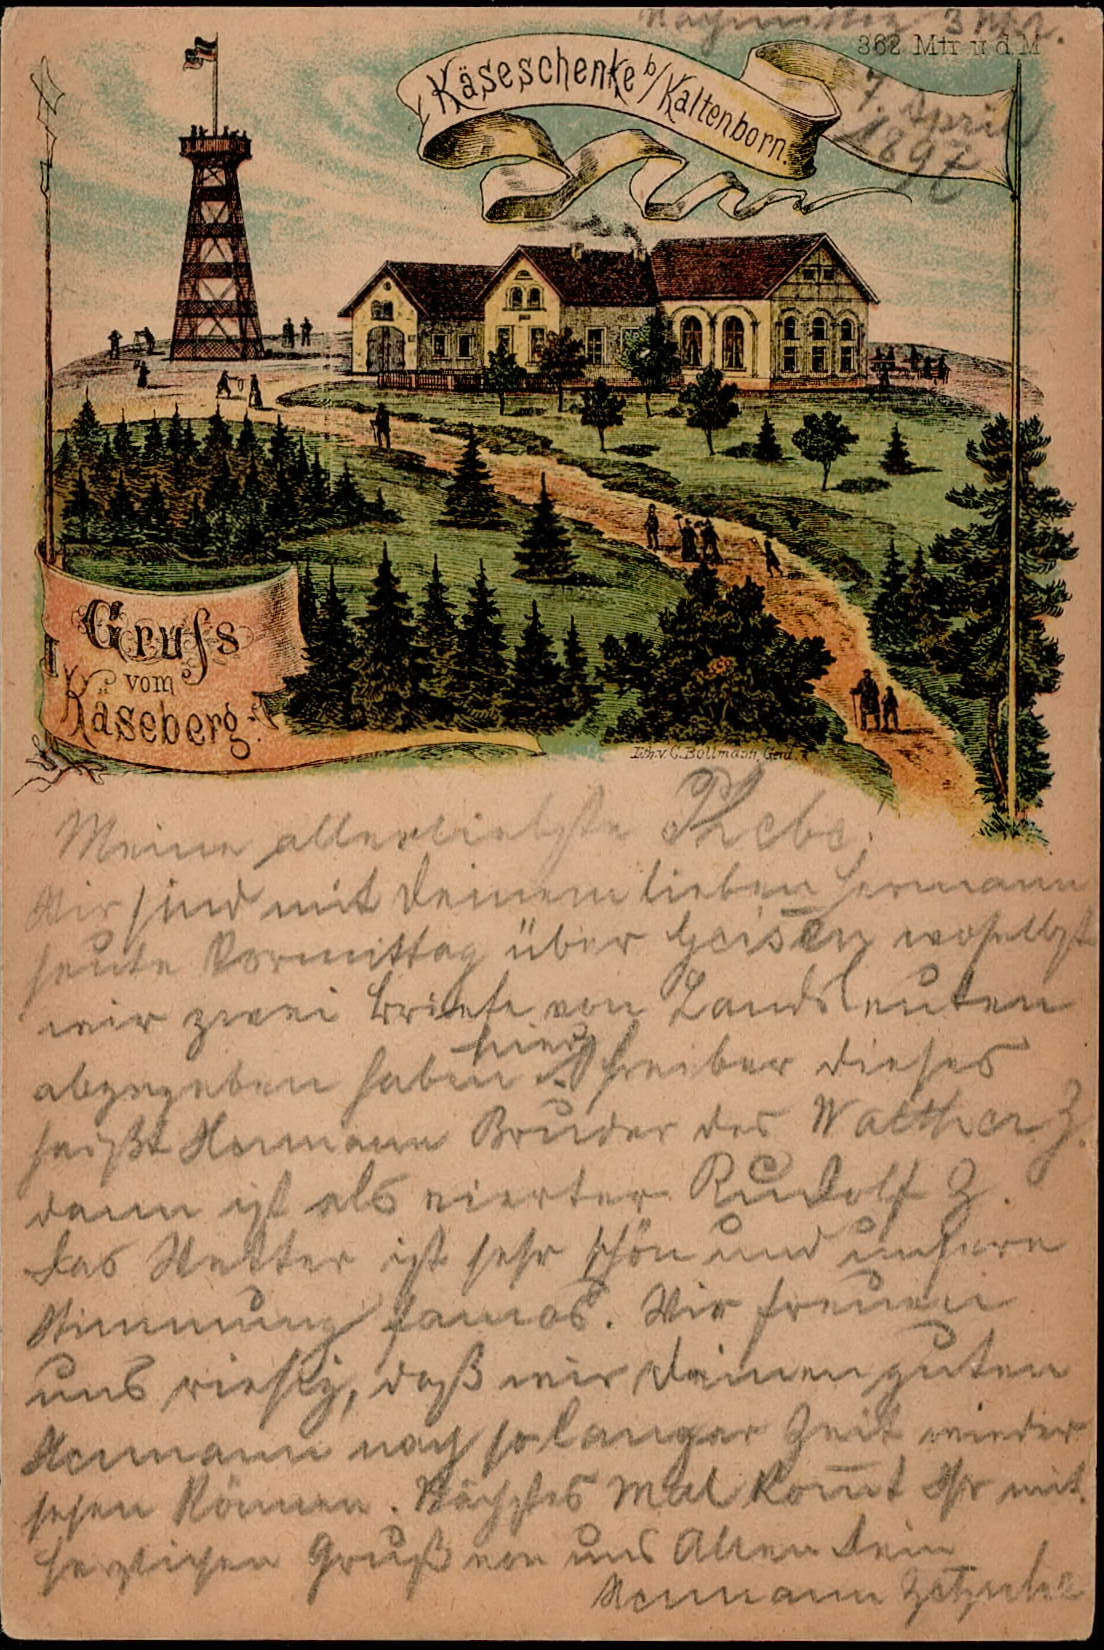 Nachmittag 3 Uhr.
362 Mtr ü d M
Käseschenke b/Kaltenborn.
7. April
1897
Gruss
vom
Käseberg.
Lith. v. C. Bollmann, Gera
Meine allerliebste Phebe!
Wir sind mit Deinem lieben Hermann
heute Vormittag über Geisen woselbst
wir zwei Briefe von Landsleuten
abgegeben haben hier. Schreiber dieses
heißt Hermann Bruder des Walther Z.
dann ist als vierter Rudolf Z.
Das Wetter ist sehr schön und unsere
Stimmung famos. Wir freuen
uns riesig, daß wir Deinen guten
Hermann nach so langer Zeit wieder
sehen können. Nächstes Mal kom̅t Ihr mit.
herzlichen Gruß von uns Allen Dein
Hermann